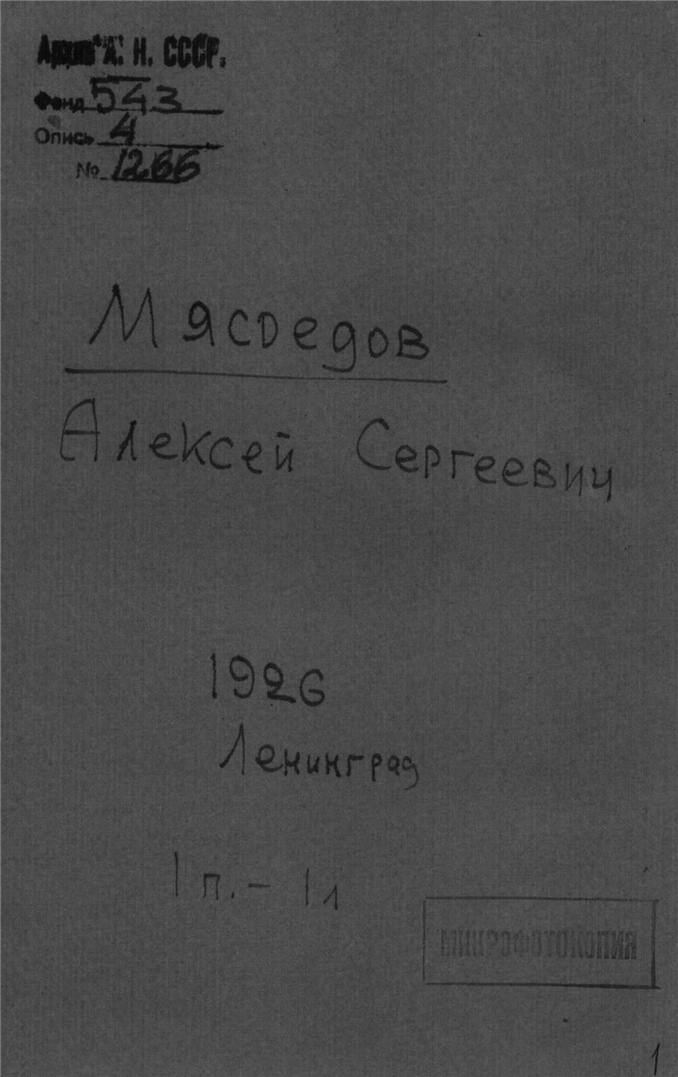 Архив А. Н. СССР.
Фонд 543
Опись 4
№ 1266
Мясоедов
Алексей Сергеевич
1926
Ленинград
1 п. – 1 л
МИКРОФОТОКОПИЯ
1